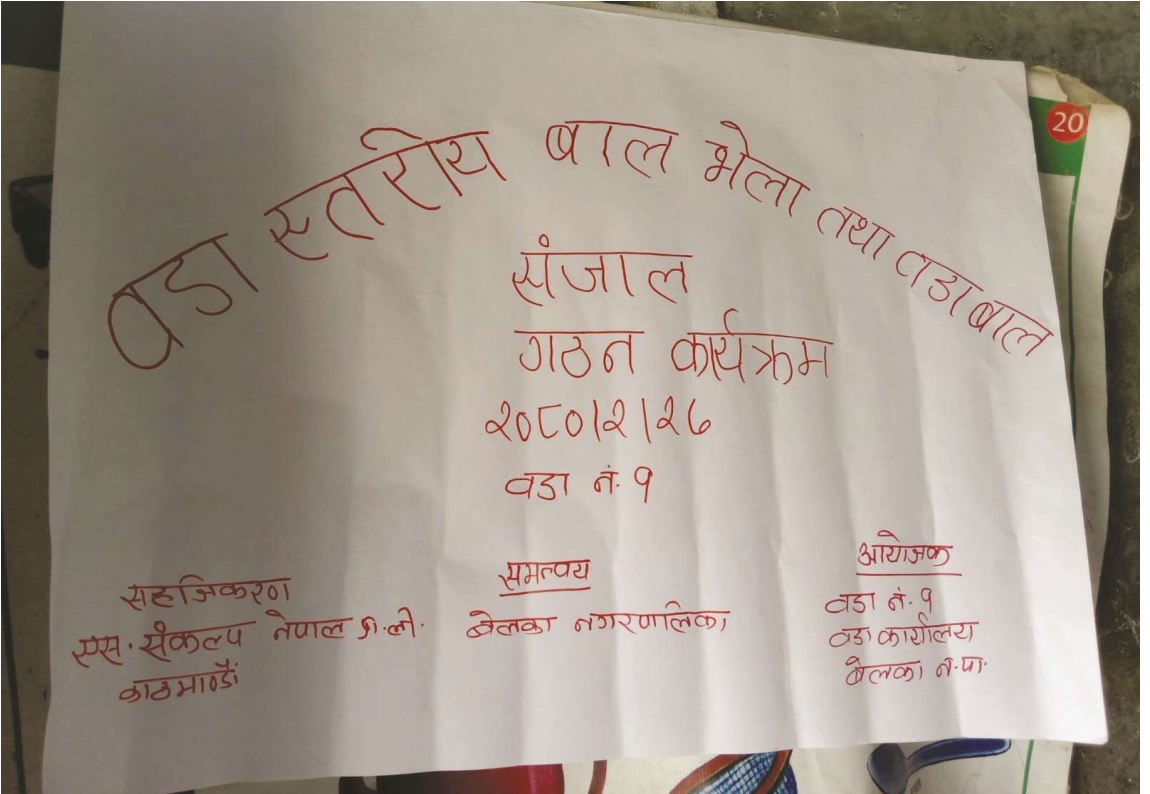 वडा स्तरीय बाल भेला तथा वडा बाल
संजाल
गठन कार्यक्रम
२०८०।२।२७
वडा नं. १
सहजिकरण
एस. संकल्प नेपाल प्रा. ली.
काठमाण्डौं
समन्वय
बेलका नगरपालिका
आयोजक
वडा नं. १
वडा कार्यालय
बेलका न.पा.
20